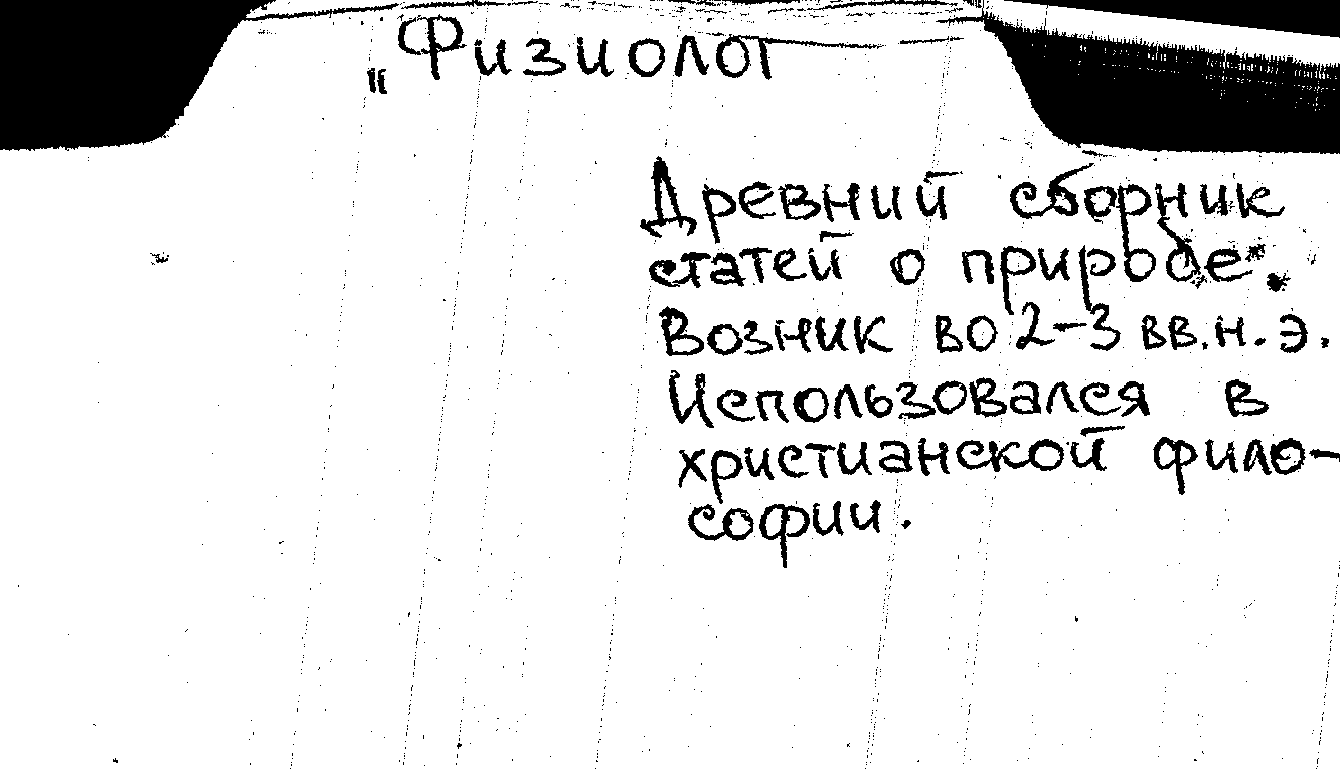 „Физиолог
Древний сборник
статей о природе.
Возник во 2-3 вв. н. э.
Использовался в
христианской фило-
софии.